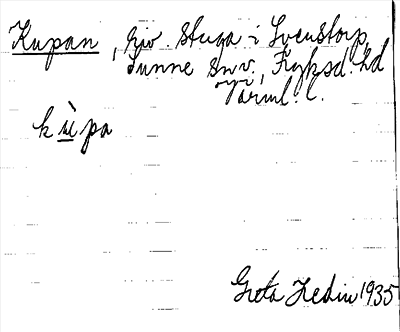 Kupan, Giv. Stuga i Svenstorp,
Sunne Snv., Fryksd. Hd
Värml. L.
kùpa
Greta Hedin 1935